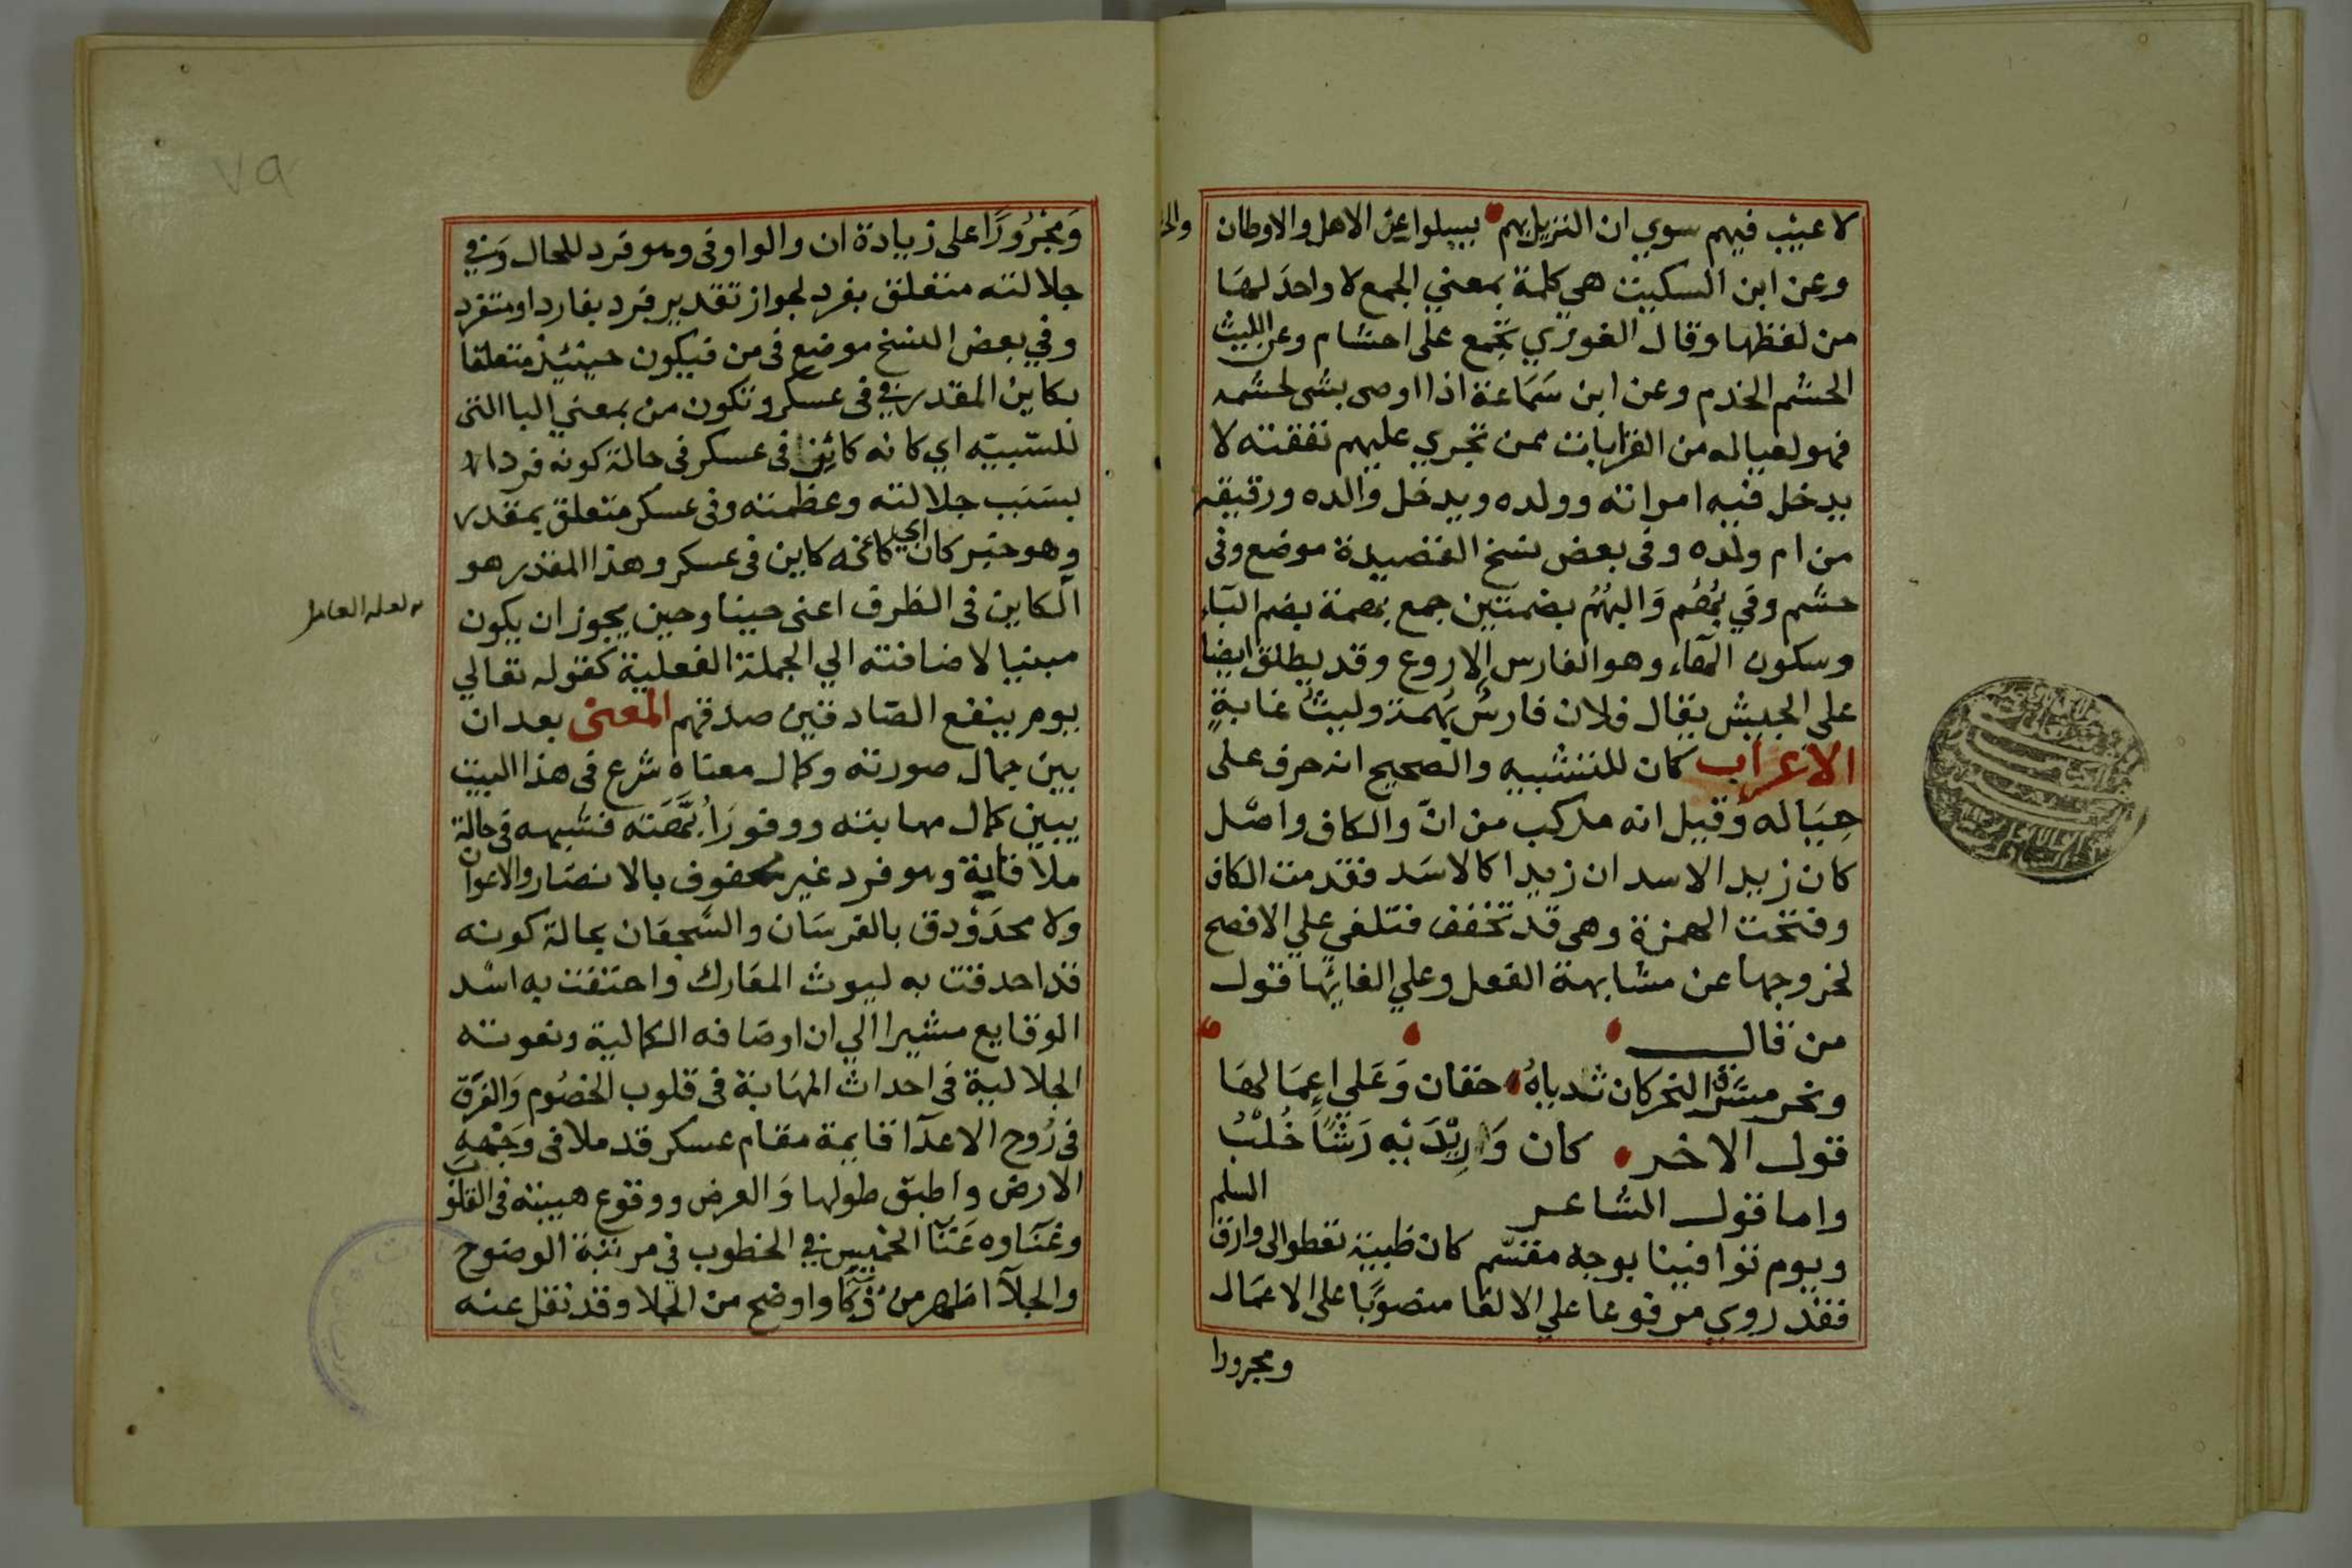 لا عيب فيهم سوي ان النزيل بهم يسلوا عن الاهل والاوطان
وعن ابن السكيت هي كلمة بمعني الجمع لا واحد لها
من لفظها وقال الغوري تجمع على احشام وعن الليث
الحشم الخدم وعن ابن سَمَاعة اذا اوصى بشى لحشمه
فهو لعياله من القرابات ممن تجري عليهم نفقته لا
يدخل فيه امراته وولده ويدخل والده ورقيقه
من ام ولده وفى بعض نسخ القصيدة موضع وفى
حشم وفي بُهُم وَالبُهُمُ بضمتين جمع بهمة بضم البَاء
وسكون الهَاء وهو الفارس الاروع وقد يطلق ايضا
على الجيش يقال فلان فارسُ بُهمة وليثُ غابةٍ
الاعراب كان للتشبيه والصحيح انه حرف على
حِيَاله وقيل انه مركب من انّ والكاف واصْل
كان زيد الاسد ان زيدا كالاسَد فقدمت الكاف
وفتحت الهمزة وهى قد تخفف فتلغى علي الافصح
لخروجها عن مشابهة الفعل وعلي الغائها قول
من قال
ونحر مشرق النحر كان ثدياهُ حقان وَعَلي اِعمَالهَا
قول الاخر كان وَرِيْدَيْه رَشَاًءَ خُلْبُ
واما قول الشاعر
ويوم توافينا بوجه مقسّم كان ظبية تعطوا الى وارق السلم
فقد روي مرفوعا علي الالغا منصوبًا على الاعمَال
ومجرورا
٧٩
وَمجْرُورًا على زيادة ان والواو فى وهو فرد للحال وَفي
جلالته متعلق بفرد لجواز تقدير فرد بفارد او متفرد
وفي بعض النسخ موضع فى من فيكون حينئذ متعلقا
بكاين المقدر في فى عسكر وتكون من بمعني البا التى
للسّببيّه اي كانه كائن فى عسكر فى حالة كونه فردا
بسَبَب جلالته وعظمته وفى عسكر متعلق بمقدر
وهو خبر كان اي كانه كاين فى عسكر وهذا المقدر هو
الكاين فى الظرف اعنى حينا وحين يجوز ان يكون
لعله العامل
مبنيا لاضافته الي الجملة الفعلية كقوله تعالي
يوم ينفع الصّادقين صدقهم المعنى بعد ان
بين جمال صورته وكمال معناه شرع فى هذا البيت
يبين كمال مهابته ووفور اُبَّهَته فشبهه فى حالة
ملاقاية وهو فرد غير محفوف بالانصَار والاعوان
ولا محدَوْدق بالفرسَان والشّجعَان بحالة كونه
قد احدقت به ليوث المعَارك واحتفت به اسْد
الوقايع مشيرا الي ان اوصَافه الكمالية ونعوته
الجلالية فى احداث المهَابة فى قلوب الخصُوم وَالفرَق
فى رُوح الاعدَآ قايمة مقام عسكر قد ملا فى وَجْههِ
الارض واطبق طولها وَالعرض ووقوع هيبته فى القلوب
وغنَاوه عَنَآ الخميس في الخطوب في مرتبة الوضوح
والجلآ اظهر من ذكَآ واوضح من الجلا وقد نقل عنه